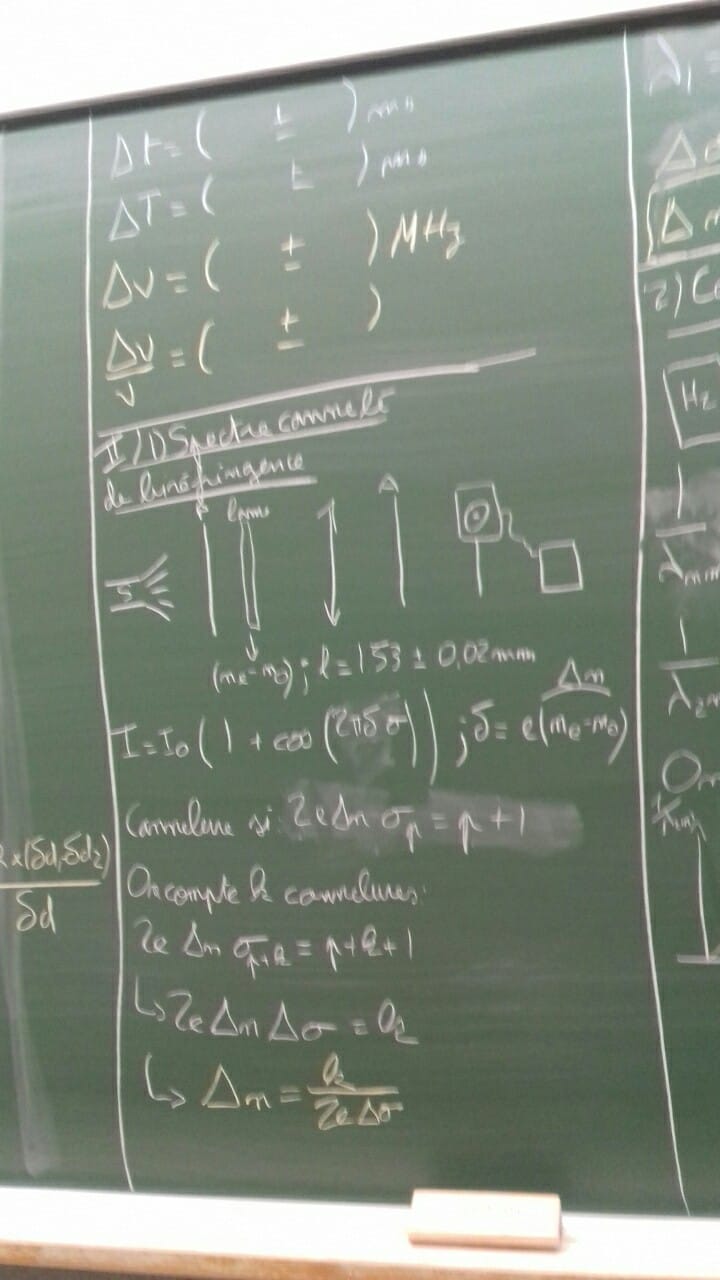 Δt = ( ± ) ms
ΔT = ( ± ) ms
Δν = ( ± ) MHz
Δν/ν = ( ± )
II/1) Spectre cannelé
de biréfringence
lame
A
(ne-no) ; l = 153 ± 0,02 mm
Δn
I = I0 (1 + cos (2πδσ)) ; δ = e(ne-no)
Cannelure si 2eΔn σp = p+1
On compte k cannelures:
2e Δn σp+k = p+k+1
↳ 2e Δn Δσ = k
↳ Δn = k/(2e Δσ)
x(δd1 δd2)
δd
λ1 =
Δn
2) C
Hz
1
λ
1
λ2